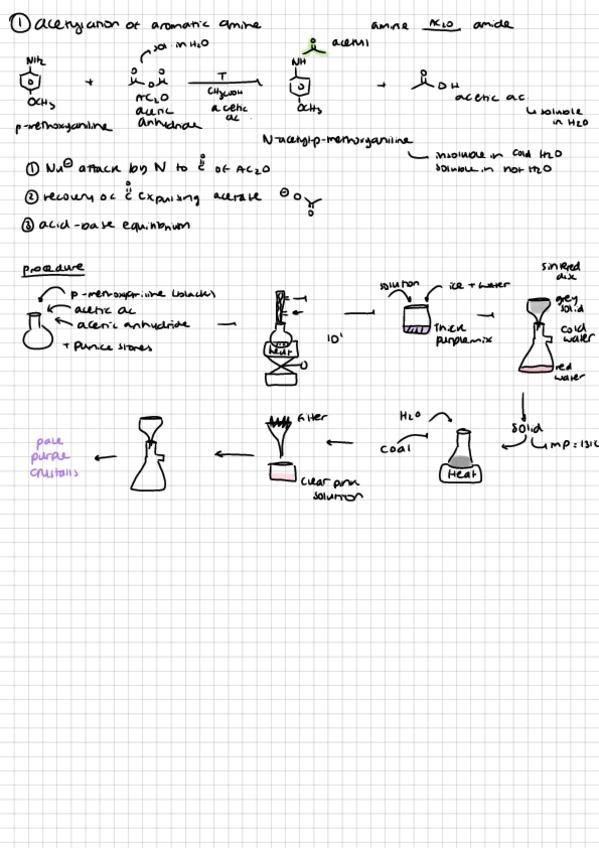 ① acetylation of aromatic amine
amine AC₂O amide
sol. in H₂O
acetyl
NH₂
OCH₃
p-methoxyaniline
+
O O
O
AC₂O
acetic
anhydride
T
CH₃COOH
acetic
ac.
NH
OCH₃
N-acetyl-p-methoxyaniline
insoluble in cold H₂O
soluble in hot H₂O
+
O
OH
acetic ac.
soluble
in H₂O
① Nu⊖ attack by N to C=O of AC₂O
② recovery of C=O expulsing acetate ⊖O O
③ acid-base equilibrium
procedure
p-methoxyaniline (black)
acetic ac
acetic anhydride
+ pumice stones
heat
10'
solution
ice + water
thick
purple mix
sintered
disc
grey
solid
cold
water
red
water
solid
H₂O
coal
Heat
filter
clear pink
solution
pale
purple
crystals